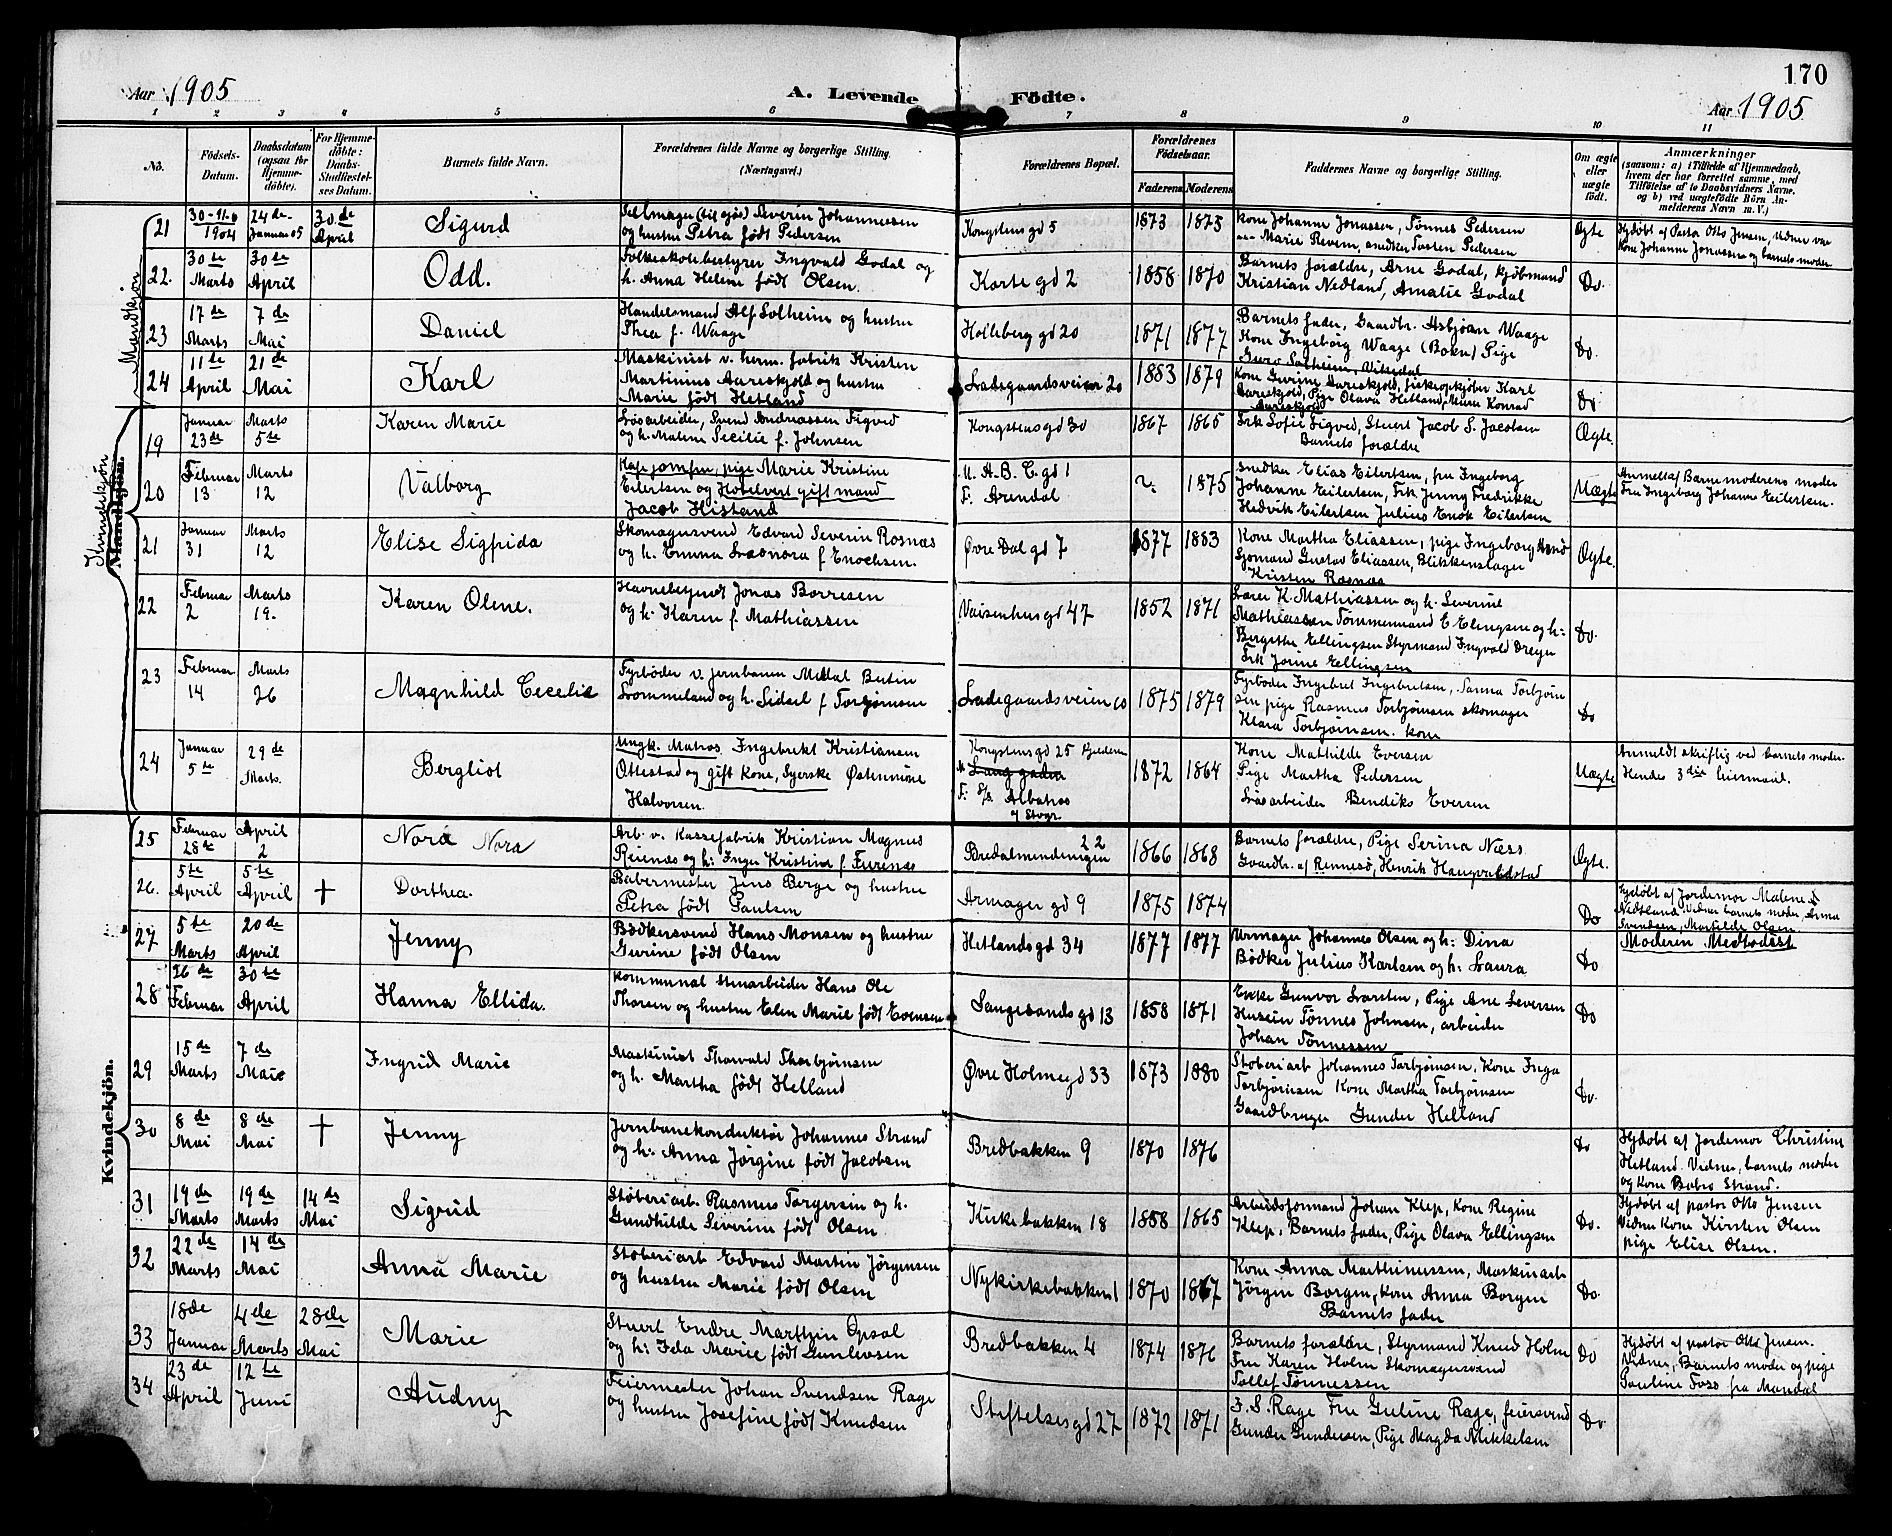 170
Aar 1905
A. Levende Födte.
Aar 1905
1 2 3 4 5 6 7 8 9 10 11
No.
Födsels-Datum.
Daabsdatum (ogsaa for Hjemmedöbte).
For Hjemmedöbte: Daabs-Stadfæstelses Datum.
Barnets fulde Navn.
Forældrenes fulde Navne og borgerlige Stilling. (Næringsvei.)
Forældrenes Bopæl.
Forældrenes Födselsaar.
Faderens Moderens
Faddernes Navne og borgerlige Stilling.
Om ægte eller uægte födt.
Anmærkninger
(saasom: a) i Tilfælde af Hjemmedaab, hvem der har forrettet samme, med Tilföielse af to Daabsvidners Navne, og b) ved uægtefödte Börn Anmelderens Navn m. V.)
Mandkjön
21 30-11 1904 24de Januar 05 30de April Sigurd
Selmager (til sjøs) Severin Johannessen
og hustru Petra født Pedersen
Kongstens gd 5 1873 1875
Kone Johanne Jonassen, Tønnes Pedersen
Marie Revem, snedker Torsten Pedersen
Ægte
Hjdøbt af Pastor Otto Jensen, Vidner var
Kone Johanne Jonassen og barnets moder
22. 30te Marts 30te April Odd.
Folkeskolebestyrer Ingvald Godal og
h. Anna Helene født Olsen.
Korte gd 2 1858 1870
Barnets forældre, Arne Godal, kjøbmand
Kristian Nedland, Amalie Godal
Do.
23 17de Marts 7de Mai Daniel
Handelsmand Alf Solheim og hustru
Thea f. Waage
Holleberg gd 20 1871 1877
Barnets fader, Gaardbr. Asbjøan Waage
Kone Ingeborg Waage (Bokn) Pige
Guro Solheim, Vikedal
Do.
24 11te April 21de Mai Karl
Maskinist v. herm. fabrik Kristen
Martinius Aareskjold og hustru
Marie født Hetland
Ladegaardsveien 20 1883 1879
Kone Gurine Aareskjold, fiskeopkjøber Karl
Aareskjold, Pige Olava Hetland, Murer Konrad
Aareskjold
Do
Kvindekjön
Mandkjön.
19 Januar 23de Marts 5te Karen Marie
Løsarbeider, Svend Andreassen Figved
og h. Malene Secilie f. Johnsen
Kongstens gd 30 1867 1865
Frk Sofie Figved, Stuert Jacob S. Jacobsen
Barnets forældre
Ægte.
20 Februar 13 Marts 12 Valborg
Kapjomfru, pige Marie Kristine
Eilertsen og Hotelvert gift mand
Jacob Histand
M. A. B. C. gd 1
F. Arendal
1875
Snedker Elias Eilertsen, fru Ingeborg
Johanne Eilertsen, Frk Jenny Fredrikke
Hedvik Eilertsen Julius Enok Eilertsen
Uægte
Anmeldt af Barnemoderens moder
Fru Ingeborg Johanne Eilertsen.
21 Januar 31 Marts 12 Elise Sigfrida
Skomagersvend Edvard Severin Rosnæs
og h. Emma Leonora f Enochsen.
Øvre Dal gd 7 1877 1883
Kone Martha Eliassen, pige Ingeborg
Sjømand Gustav Eliassen, Blikkenslager
Kristen Rosnæs
Ægte.
22 Februar 2 Marts 19. Karen Olene.
Havnebetjendt Jonas Borresen
og h. Karen f. Mathiassen
Vaisenhus gd 47 1852 1871
Lærer K. Mathiassen og h. Severine
Mathiassen Tømmermand E Elingsen og h:
Bergithe Ellingsen Styrmand Ingvald Dreyer
Frk Jorine Ellingsen
Do.
23 Februar 14 Marts 26 Magnhild Cecelie
Fyrbøder v. jernbanen Mikkal Bertin
Lommeland og h. Sidsel f Torbjørnsen
Ladegaardsveien 60 1875 1879
Fyrbøder Ingebret Ingebretsen, Sanna Torbjørnsen pige Rasmus Torbjørnsen skomager
Klara Torbjørnsen. kone
Do
24 Januar 5te 29de Marts. Bergliot
Ungk. Matros Ingebrekt Kristiansen
Ottestad og gift Kone, Syerske Østensine
Halvorsen.
Kongstens gd 25 Bredeven
M Lang gaden
F: S/s. Albatros
af Stvgr
1872 1864
Kone Mathilde Eversen
Pige Martha Pedersen
Løsarbeider Bendiks Eversen
Uægte
Anmeldt skriftlig ved barnets moder.
Hendes 3die leiermaal.
Kvindekjön.
25 Februar 28de April 2 Nora Nora
Arb. v. Kassefabrik Kristian Magnus
Reienæs og h: Inger Kristine f Furenæs
Bredalmendningen 22 1866 1868
Barnets forældre, Pige Serina Næss
Gaardbr. af Rennesø, Henrik Haugvaldstad
Ægte.
26. 5te April 5te April † Dorthea.
Babermester Jens Berge og hustru
Petra født Paulsen
Armager gd 9 1875 1874
Do
Hjdøbt af Jordemor Malene
Nedtland Vidner barnets moder, Anna
Svendsen, Mathilde Olsen
27 5te Marts 20de April Jenny
Bødkersvend Hans Monsen og hustru
Gurine født Olsen
Hetlands gd 34 1877 1877
Urmager Johannes Olsen og h: Dina
Bødker Julius Karlsen og h: Laura
Do
Moderen Methodist
28 26de Februar 30te April Hanna Ellida.
Kommunal stenarbeider Hans Ole
Thorsen og hustru Elen Marie født Evensen
Langesands gd 13 1858 1871
Enke Gunvor Larsten, Pige Ane Seversen
Huseier Tønnes Johnsen, arbeider
Johan Tønnessen
Do
29 15de Marts 7de Mai Ingrid Marie
Maskinist Thorvald Thorbjørnsen
og h. Martha født Helland
Øvre Holmegd 33 1873 1880
Støberiarb Johannes Torbjørnsen, Kone Inga
Torbjørnsen Kone Martha Torbjørnsen
Gaardbruger Gunder Helland
Do.
30 8de Mai 8de Mai † Jenny
Jernbanekonduktør Johannes Strand
og h: Anna Jørgine født Jacobsen
Bredbakken 9 1870 1876
Do
Hjdøbt af Jordemor Christine
Hetland. Vidner, barnets moder
og Kone Bolro Strand.
31 19de Marts 19de Marts 14de Mai Sigrid
Støberiarb. Rasmus Torgersen og h.
Gundhilde Severine født Olsen
Kirkebakken 18 1858 1865
Arbeidsformand Johan Klep, Kone Regine
Klep, Barnets fader, Pige Olava Ellingsen
Do.
Hjdøbt af pastor Otto Jensen
Vidner Kone Kirsten Olsen
pige Elise Olsen.
32 22de Marts 14de Mai Anna Marie
Støberiarb Edvard Martin Jørgensen
og hustru Marie født Olsen
Nykirkebakken 1 1870 1867
Kone Anna Marthinussen, Maskinarb
Jørgen Borgen, kone Anna Borgen
Barnets fader
Do.
33 18de Januar 4de Marts 28de Mai Marie
Stuert Endre Marthin Opsal
og h: Ida Marie født Gunlevsen
Bredbakken 4 1874 1876
Barnets forældre, Styrmand Knud Holm
Fru Karen Holm Skomagersvend
Tollef Tønnessen
Do
Hjdøbt af pastor Otto Jensen.
Vidner, Barnets moder og pige
Pauline Foss fra Mandal
34 23de April 12te Juni Audny
Feiermester Johan Svendsen Rage
og hustru Josefine født Knudsen
Stiftelsesgd 27 1872 1871
J. S. Rage Fru Guline Rage, feiersvend
Gunder Gundersen, Pige Magda Mikkelsen
Do.